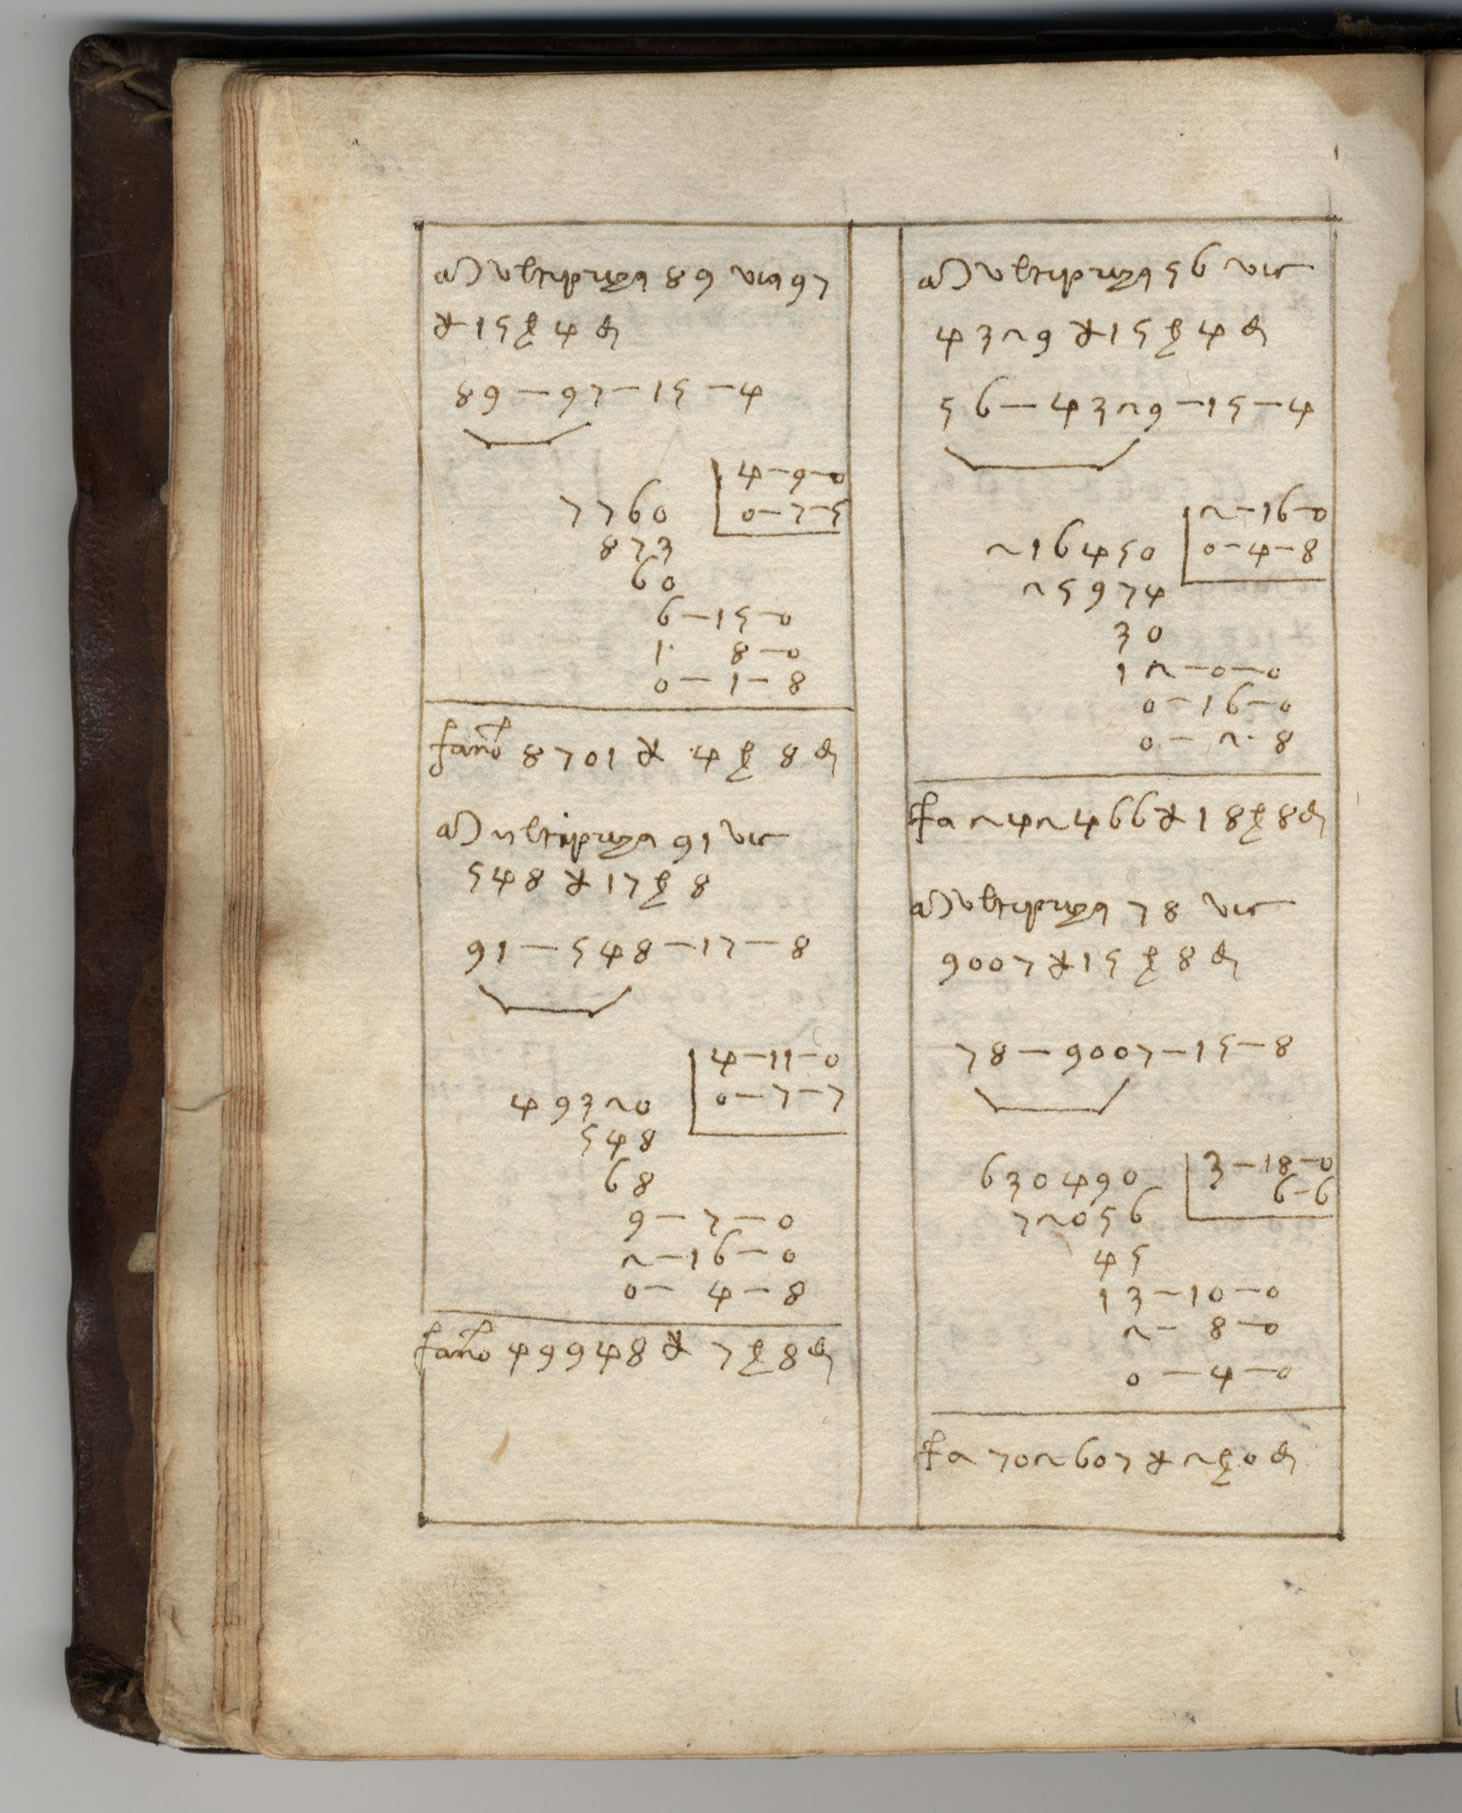 Multipriga 89 via 97
₤ 15 ẞ 4 d
89 — 97 — 15 — 4
4 — 9 — 0
7760 0 — 7 — 5
873
60
6 — 15 — 0
1 8 — 0
0 — 1 — 8
fano 8701 ₤ 4 ẞ 8 d
Multipriga 91 via
548 ₤ 17 ẞ 8
91 — 548 — 17 — 8
4 — 11 — 0
49320 0 — 7 — 7
548
68
9 — 7 — 0
2 — 16 — 0
0 — 4 — 8
fano 49948 ₤ 7 ẞ 8 d
Multipriga 56 via
4329 ₤ 15 ẞ 4 d
56 — 4329 — 15 — 4
2 — 16 — 0
216450 0 — 4 — 8
25974
30
12 — 0 — 0
0 — 16 — 0
0 — 2 · 8
fa 242466 ₤ 18 ẞ 8 d
Multipriga 78 via
9007 ₤ 15 ẞ 8 d
78 — 9007 — 15 — 8
3 — 18 — 0
630490 6 — 6
72056
45
13 — 10 — 0
2 — 8 — 0
0 — 4 — 0
fa 702607 ₤ 2 ẞ 0 d